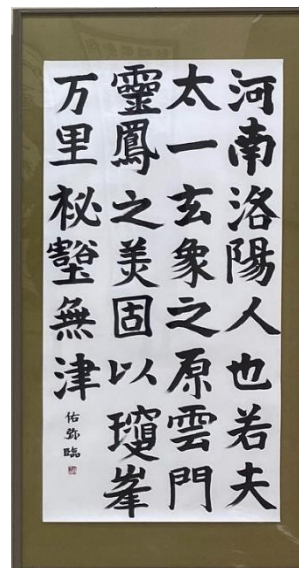 河南洛陽人也若夫
太一玄象之原雲門
靈鳳之美固以瓊峯
万里祕壑無津
佑弥臨